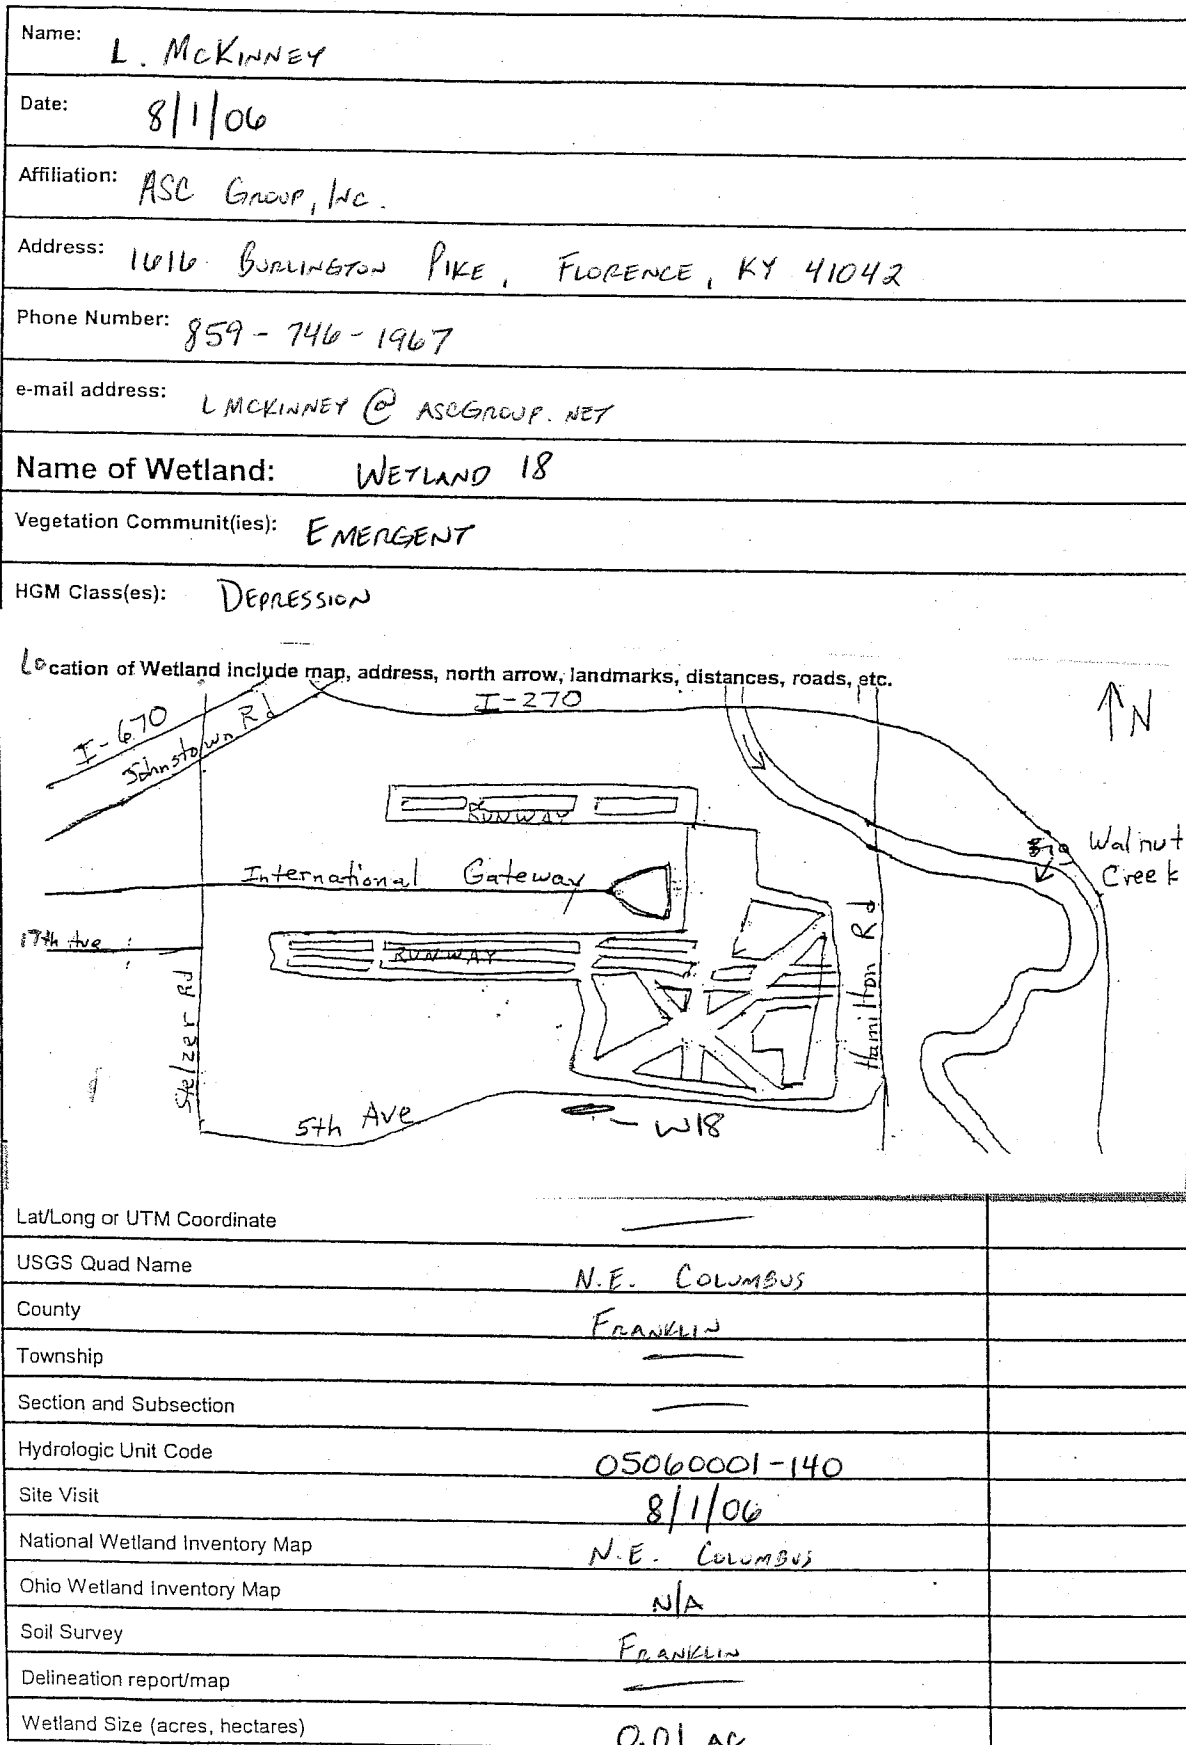 Name: L. McKINNEY
Date: 8/1/06
Affiliation: ASC GROUP, INC.
Address: 1616 BURLINGTON PIKE, FLORENCE, KY 41042
Phone Number: 859-746-1967
e-mail address: LMCKINNEY@ASCGROUP.NET
Name of Wetland: WETLAND 18
Vegetation Communit(ies): EMERGENT
HGM Class(es): DEPRESSION
Location of Wetland include map, address, north arrow, landmarks, distances, roads, etc.
I-270
N
I-670
Johnstown Rd
RUNWAY
Big Walnut
Creek
International Gateway
17th Ave
RUNWAY
Stelzer Rd
Hamilton Rd
5th Ave
W18
Lat/Long or UTM Coordinate —
USGS Quad Name N.E. COLUMBUS
County FRANKLIN
Township —
Section and Subsection —
Hydrologic Unit Code 05060001-140
Site Visit 8/1/06
National Wetland Inventory Map N.E. COLUMBUS
Ohio Wetland Inventory Map N/A
Soil Survey FRANKLIN
Delineation report/map —
Wetland Size (acres, hectares) 0.01 AC